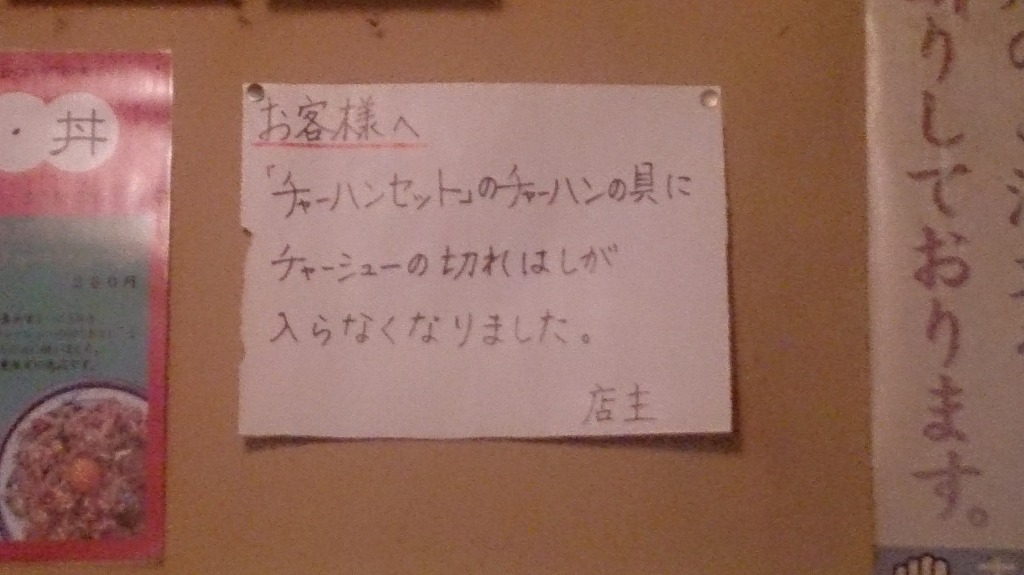 お客様へ
「チャーハンセット」のチャーハンの具に
チャーシューの切れはしが
入らなくなりました。
店主
・丼
りしております。